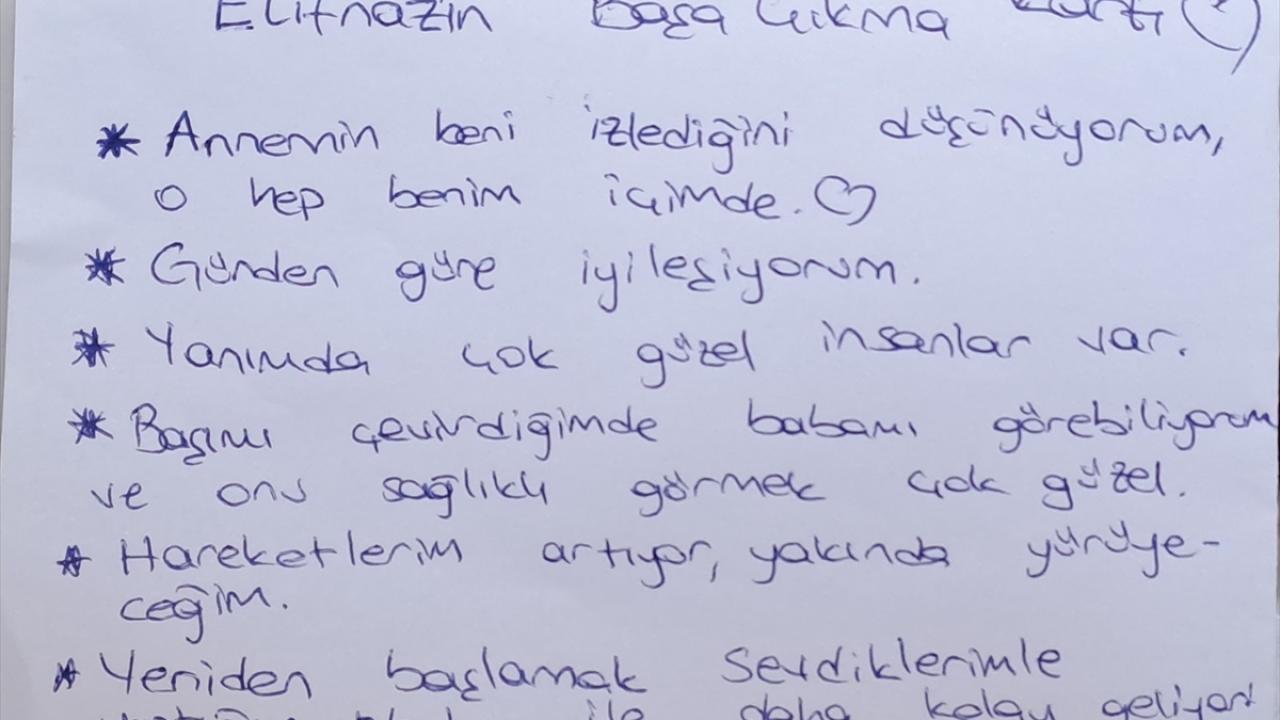 Elifnazın Başa Çıkma Kartı ♡
* Annemin beni izlediğini düşünüyorum,
o hep benim içimde. ♡
* Günden güne iyileşiyorum.
* Yanımda çok güzel insanlar var.
* Başımı çevirdiğimde babamı görebiliyorum
ve onu sağlıklı görmek çok güzel.
* Hareketlerim artıyor, yakında yürüye-
ceğim.
* Yeniden başlamak sevdiklerimle
ile daha kolay geliyor